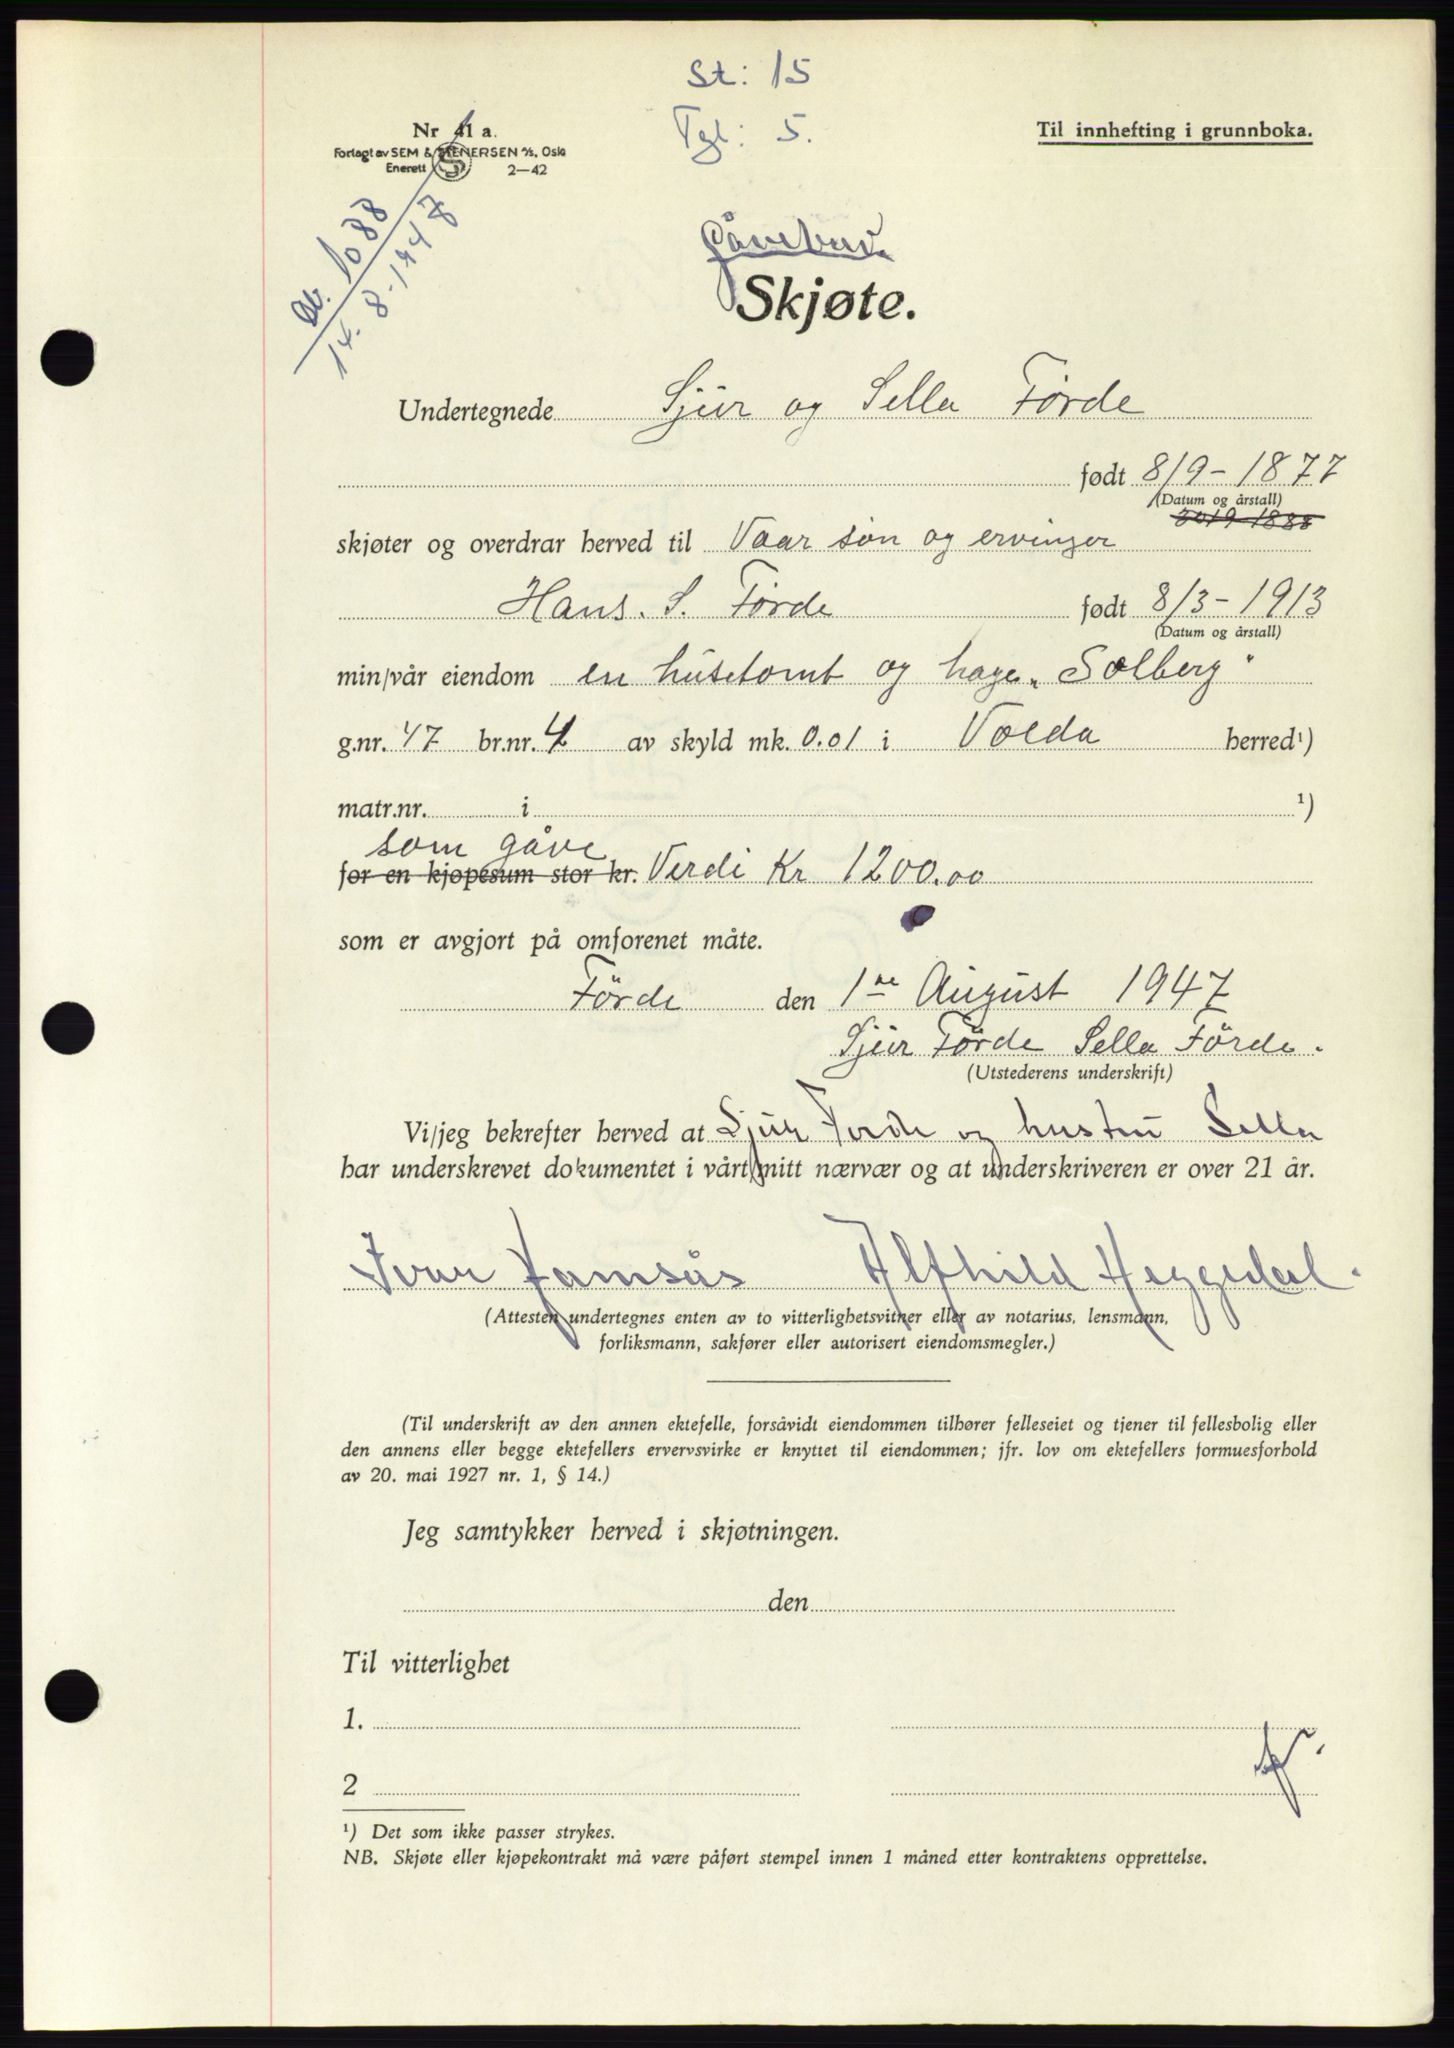 St: 15
Tgl: 5.
Nr 41 a.
Forlagt av SEM & STENERSEN A/S, Oslo
Enerett 2—42
Til innhefting i grunnboka.
Db. 1088
14. 8-1947
Gåvebrev.
Skjøte.
Undertegnede Sjur og Sella Förde
født 8/9-1877
(Datum og årstall)
skjøter og overdrar herved til Vaar sön og ervinger
Hans. S. Förde født 8/3-1913
(Datum og årstall)
min/vår eiendom en hüsetomt og hage „Solberg"
g.nr. 47 br.nr. 4 av skyld mk. 0.01 i Volda herred¹)
matr.nr. i ¹)
som gåve
for en kjøpesum stor kr. Verdi Kr 1200.00
som er avgjort på omforenet måte.
Förde den 1ne August 1947
Sjur Förde Sella Förde.
(Utstederens underskrift)
Vi/jeg bekrefter herved at Sjur Förde og hustru Sella
har underskrevet dokumentet i vårt/mitt nærvær og at underskriveren er over 21 år.
Ivar Jamsås Alfhild Heggedal.
(Attesten undertegnes enten av to vitterlighetsvitner eller av notarius, lensmann,
forliksmann, sakfører eller autorisert eiendomsmegler.)
(Til underskrift av den annen ektefelle, forsåvidt eiendommen tilhører felleseiet og tjener til fellesbolig eller
den annens eller begge ektefellers ervervsvirke er knyttet til eiendommen; jfr. lov om ektefellers formuesforhold
av 20. mai 1927 nr. 1, § 14.)
Jeg samtykker herved i skjøtningen.
den
Til vitterlighet
1.
2
¹) Det som ikke passer strykes.
NB. Skjøte eller kjøpekontrakt må være påført stempel innen 1 måned etter kontraktens opprettelse.